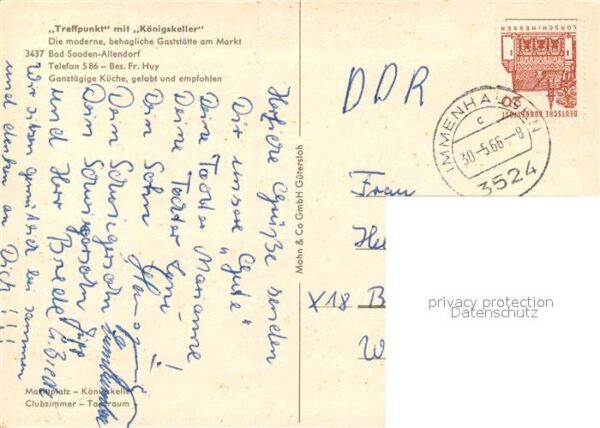 „Treffpunkt" mit „Königskeller"
Die moderne, behagliche Gaststätte am Markt
3437 Bad Sooden-Allendorf
Telefon 586 – Bes. Fr. Huy
Ganztägige Küche, gelobt und empfohlen
Herzliche Grüße senden
Dir unsere "Gute"
Deine Tochter Marianne
Deine Tochter
Dein Sohn
Dein Schwiegersohn
Dein Schwiegersohn
und Herr
Wir sitzen gemütlich beisammen
und denken an Dich!!!
Marktplatz – Königskeller
Clubzimmer – Tanzraum
Mohn & Co GmbH Gütersloh
DDR
Frau
X18 B
W
LORSCH/HESSEN
DEUTSCHE BUNDESPOST
IMMENHAUSEN
c
30.-5.66.-8
3524
privacy protection
Datenschutz